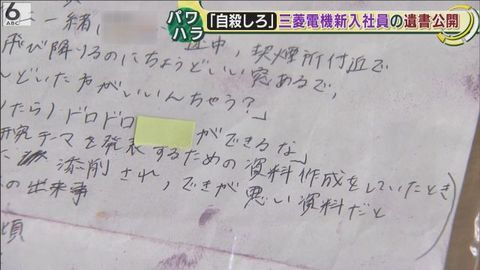 6 ABC
パワハラ
「自殺しろ」三菱電機新入社員の遺書公開
一緒
途中，喫煙所付近で
飛び降りるのにちょうどいい窓あるで，
しといた方がいいんちゃう？」
たら）ドロドロ
ができるな」
究テーマを発表するための資料作成をしていたとき
添削され，できが悪い資料だと
の出来事
頃